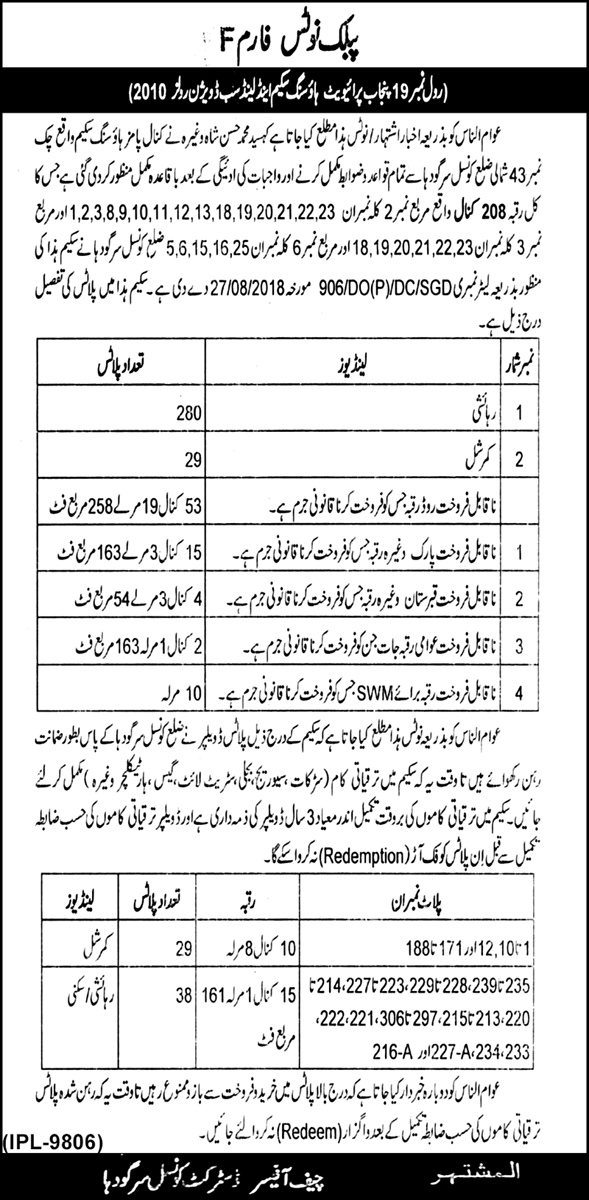 پبلک نوٹس فارم F
(رول نمبر 19 پنجاب پرائیویٹ ہاؤسنگ سکیم اینڈ لینڈ سب ڈویژن رولز 2010)
عوام الناس کو بذریعہ اخبار اشتہار/نوٹس ہذا مطلع کیا جاتا ہے کہ سید محمد حسن شاہ وغیرہ نے کنال پامز ہاؤسنگ سکیم واقع چک
نمبر 43 شمالی ضلع کونسل سرگودہا سے تمام قواعد و ضوابط مکمل کرنے اور واجبات کی ادائیگی کے بعد باقاعدہ مکمل منظور کر دی گئی ہے جس کا
کل رقبہ 208 کنال واقع مربع نمبر 2 کلہ نمبران 1,2,3,8,9,10,11,12,13,18,19,20,21,22,23 اور مربع
نمبر 3 کلہ نمبران 18,19,20,21,22,23 اور مربع نمبر 6 کلہ نمبران 5,6,15,16,25 ضلع کونسل سرگودہا نے سکیم ہذا کی
منظور بذریعہ لیٹر نمبری 906/DO(P)/DC/SGD مورخہ 27/08/2018 دے دی ہے۔ سکیم ہذا میں پلاٹس کی تفصیل
درج ذیل ہے۔
نمبر شمار لینڈ یوز تعداد پلاٹس
1 رہائشی 280
2 کمرشل 29
ناقابل فروخت روڈ رقبہ جس کو فروخت کرنا قانونی جرم ہے۔ 53 کنال 19 مرلے 258 مربع فٹ
1 ناقابل فروخت پارک وغیرہ رقبہ جس کو فروخت کرنا قانونی جرم ہے۔ 15 کنال 3 مرلے 163 مربع فٹ
2 ناقابل فروخت قبرستان وغیرہ رقبہ جس کو فروخت کرنا قانونی جرم ہے۔ 4 کنال 3 مرلے 54 مربع فٹ
3 ناقابل فروخت عوامی رقبہ جات جن کو فروخت کرنا قانونی جرم ہے۔ 2 کنال 1 مرلہ 163 مربع فٹ
4 ناقابل فروخت رقبہ برائے SWM جس کو فروخت کرنا قانونی جرم ہے۔ 10 مرلہ
عوام الناس کو بذریعہ نوٹس ہذا مطلع کیا جاتا ہے کہ سکیم کے درج ذیل پلاٹس ڈویلپر نے ضلع کونسل سرگودہا کے پاس بطور ضمانت
رہن رکھوائے ہیں تاوقت یہ کہ سکیم میں ترقیاتی کام (سڑکات، سیوریج، بجلی، سٹریٹ لائٹ، گیس، ہارٹیکلچر وغیرہ) مکمل کر لئے
جائیں۔ سکیم میں ترقیاتی کاموں کی بروقت تکمیل اندر معیاد 3 سال ڈویلپر کی ذمہ داری ہے اور ڈویلپر ترقیاتی کاموں کی حسب ضابطہ
تکمیل سے قبل ان پلاٹس کو فک آڑ (Redemption) نہ کروا سکے گا۔
پلاٹ نمبران رقبہ تعداد پلاٹس لینڈ یوز
1 تا 12,10 اور 171 تا 188 10 کنال 8 مرلہ 29 کمرشل
235 تا 239، 228 تا 229، 223 تا 227، 214 تا 15 کنال 1 مرلہ 161 38 رہائشی/سکنی
220، 213 تا 215، 297 تا 306، 221، 222، مربع فٹ
233، 234، 227-A اور 216-A
عوام الناس کو دوبارہ خبردار کیا جاتا ہے کہ درج بالا پلاٹس میں خرید و فروخت سے باز و ممنوع رہیں تاوقت یہ کہ رہن شدہ پلاٹس
ترقیاتی کاموں کی حسب ضابطہ تکمیل کے بعد واگزار (Redeem) نہ کروا لئے جائیں۔
(IPL-9806)
المشتہر چیف آفیسر ڈسٹرکٹ کونسل سرگودہا